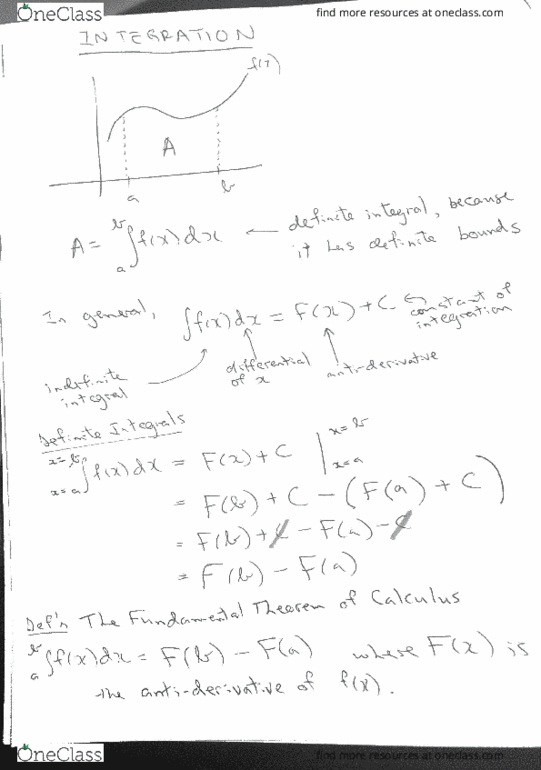 OneClass
find more resources at oneclass.com
INTEGRATION
A
a
b
A = ∫ₐᵇ f(x) dx ← definite integral, because
it has definite bounds
In general, ∫f(x)dx = F(x) + C ← constant of
integration
indefinite
integral
differential
of x
anti-derivative
Definite Integrals
x=b
x=a
∫f(x)dx = F(x) + C | x=b
x=a
= F(b) + C - (F(a) + C)
= F(b) + C - F(a) - C
= F(b) - F(a)
Def'n The Fundamental Theorem of Calculus
∫ₐᵇ f(x)dx = F(b) - F(a) where F(x) is
the anti-derivative of f(x).
OneClass
find more resources at oneclass.com